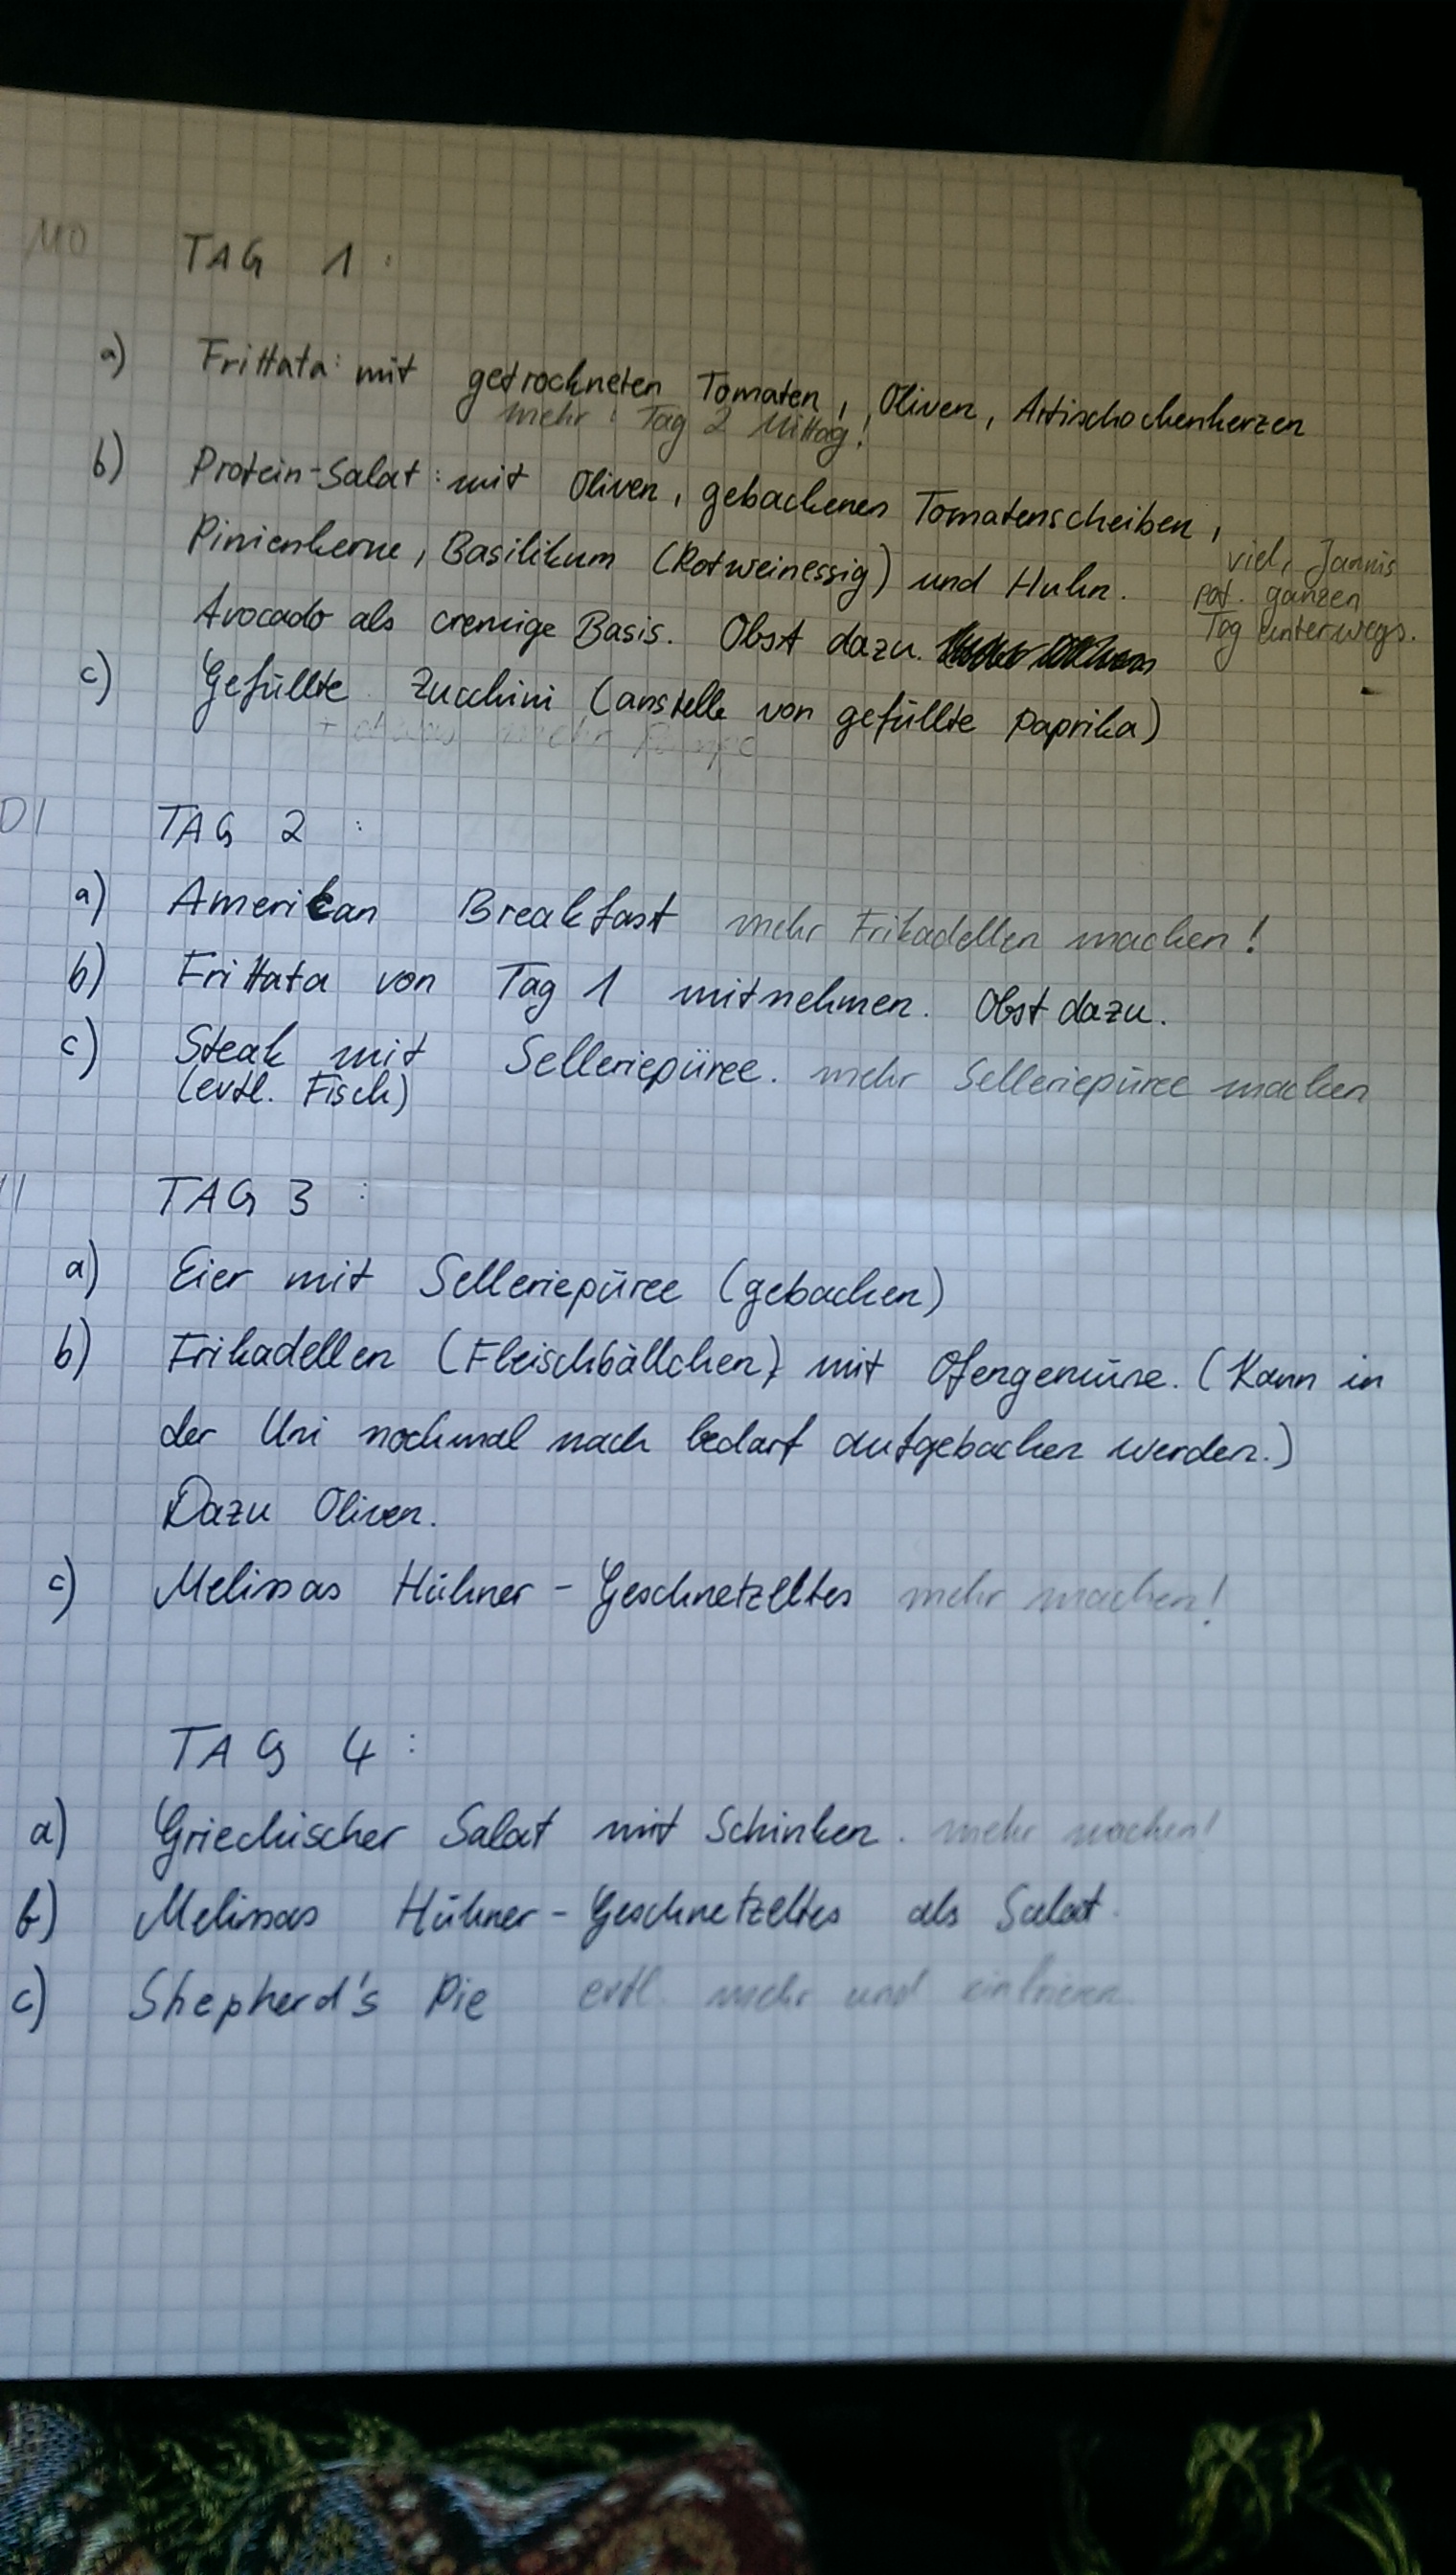 MO TAG 1:
a) Frittata: mit getrockneten Tomaten, Oliven, Artischockenherzen
mehr! Tag 2 Mittag!
b) Protein-Salat: mit Oliven, gebackenen Tomatenscheiben,
Pinienkerne, Basilikum (Rotweinessig) und Huhn.
viel, Jannis
pot. ganzen
Tag unterwegs.
Avocado als cremige Basis. Obst dazu.
c) Gefüllte Zucchini (anstelle von gefüllte Paprika)
+ etwas mehr
DI TAG 2:
a) American Breakfast mehr Frikadellen machen!
b) Frittata von Tag 1 mitnehmen. Obst dazu.
c) Steak mit Selleriepüree. mehr Selleriepüree machen
(evtl. Fisch)
TAG 3:
a) Eier mit Selleriepüree (gebacken)
b) Frikadellen (Fleischbällchen) mit Ofengemüse. (Kann in
der Uni nochmal nach bedarf aufgebacken werden.)
Dazu Oliven.
c) Melissas Hühner-Geschnetzeltes mehr machen!
TAG 4:
a) Griechischer Salat mit Schinken. mehr machen!
b) Melissas Hühner-Geschnetzeltes als Salat.
c) Shepherd's Pie evtl. mehr und einfrieren